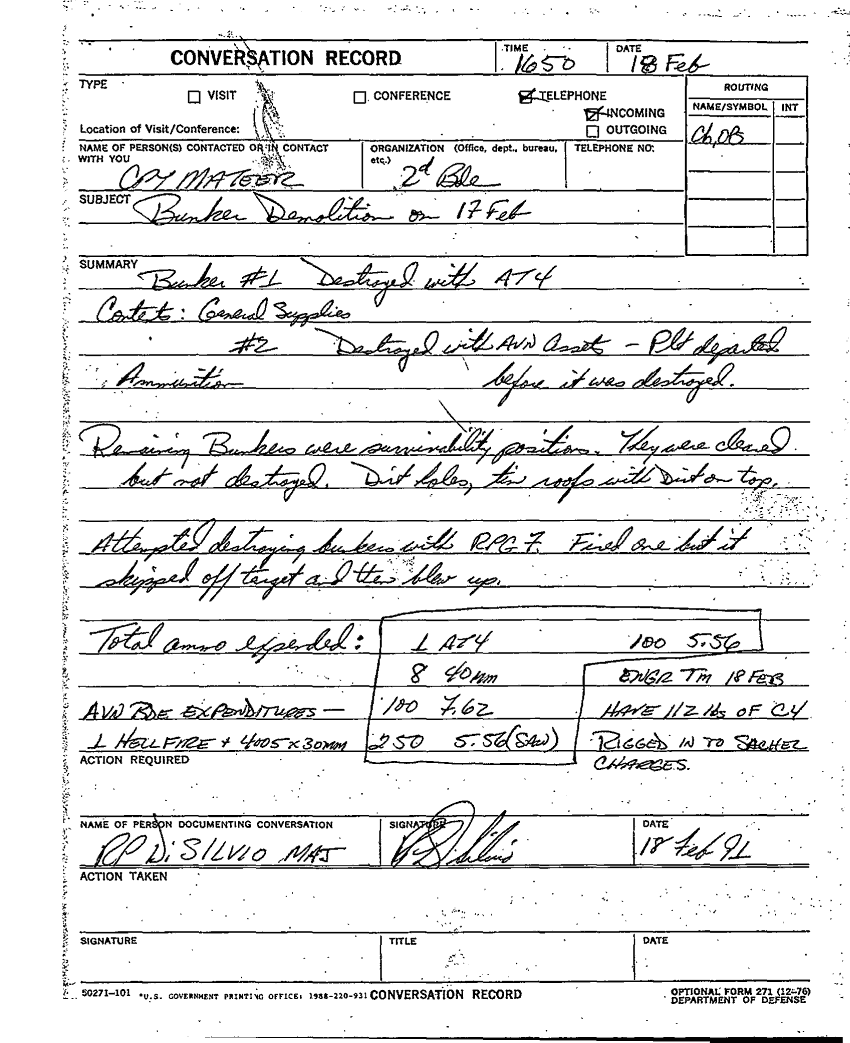 CONVERSATION RECORD
TIME
1650
DATE
18 Feb
TYPE
VISIT
CONFERENCE
TELEPHONE
INCOMING
OUTGOING
ROUTING
NAME/SYMBOL INT
Ch, OB
Location of Visit/Conference:
NAME OF PERSON(S) CONTACTED OR IN CONTACT WITH YOU
CPT MATEER
ORGANIZATION (Office, dept., bureau, etc.)
2d Bde
TELEPHONE NO:
SUBJECT
Bunker Demolition on 17 Feb
SUMMARY
Bunker #1 Destroyed with AT4
Contents: General Supplies
#2 Destroyed with AVN Assets - Plt departed
Ammunition before it was destroyed.
Remaining Bunkers were survivability positions. They were cleared
but not destroyed. Dirt holes, tin roofs with Dirt on top.
Attempted destroying bunkers with RPG 7. Fired one but it
skipped off target and then blew up.
Total ammo expended: 1 AT4 100 5.56
8 40mm ENGR TM 18 FEB
AVN BDE EXPENDITURES - 100 7.62 HAVE 112 lbs OF C4
1 HELLFIRE + 4005 x 30mm 250 5.56 (SAW) RIGGED IN TO SACHEL
CHARGES.
ACTION REQUIRED
NAME OF PERSON DOCUMENTING CONVERSATION
RP DiSILVIO MAJ
SIGNATURE
DATE
18 Feb 91
ACTION TAKEN
SIGNATURE
TITLE
DATE
50271-101 *U.S. GOVERNMENT PRINTING OFFICE: 1988-220-931 CONVERSATION RECORD
OPTIONAL FORM 271 (12-76)
DEPARTMENT OF DEFENSE